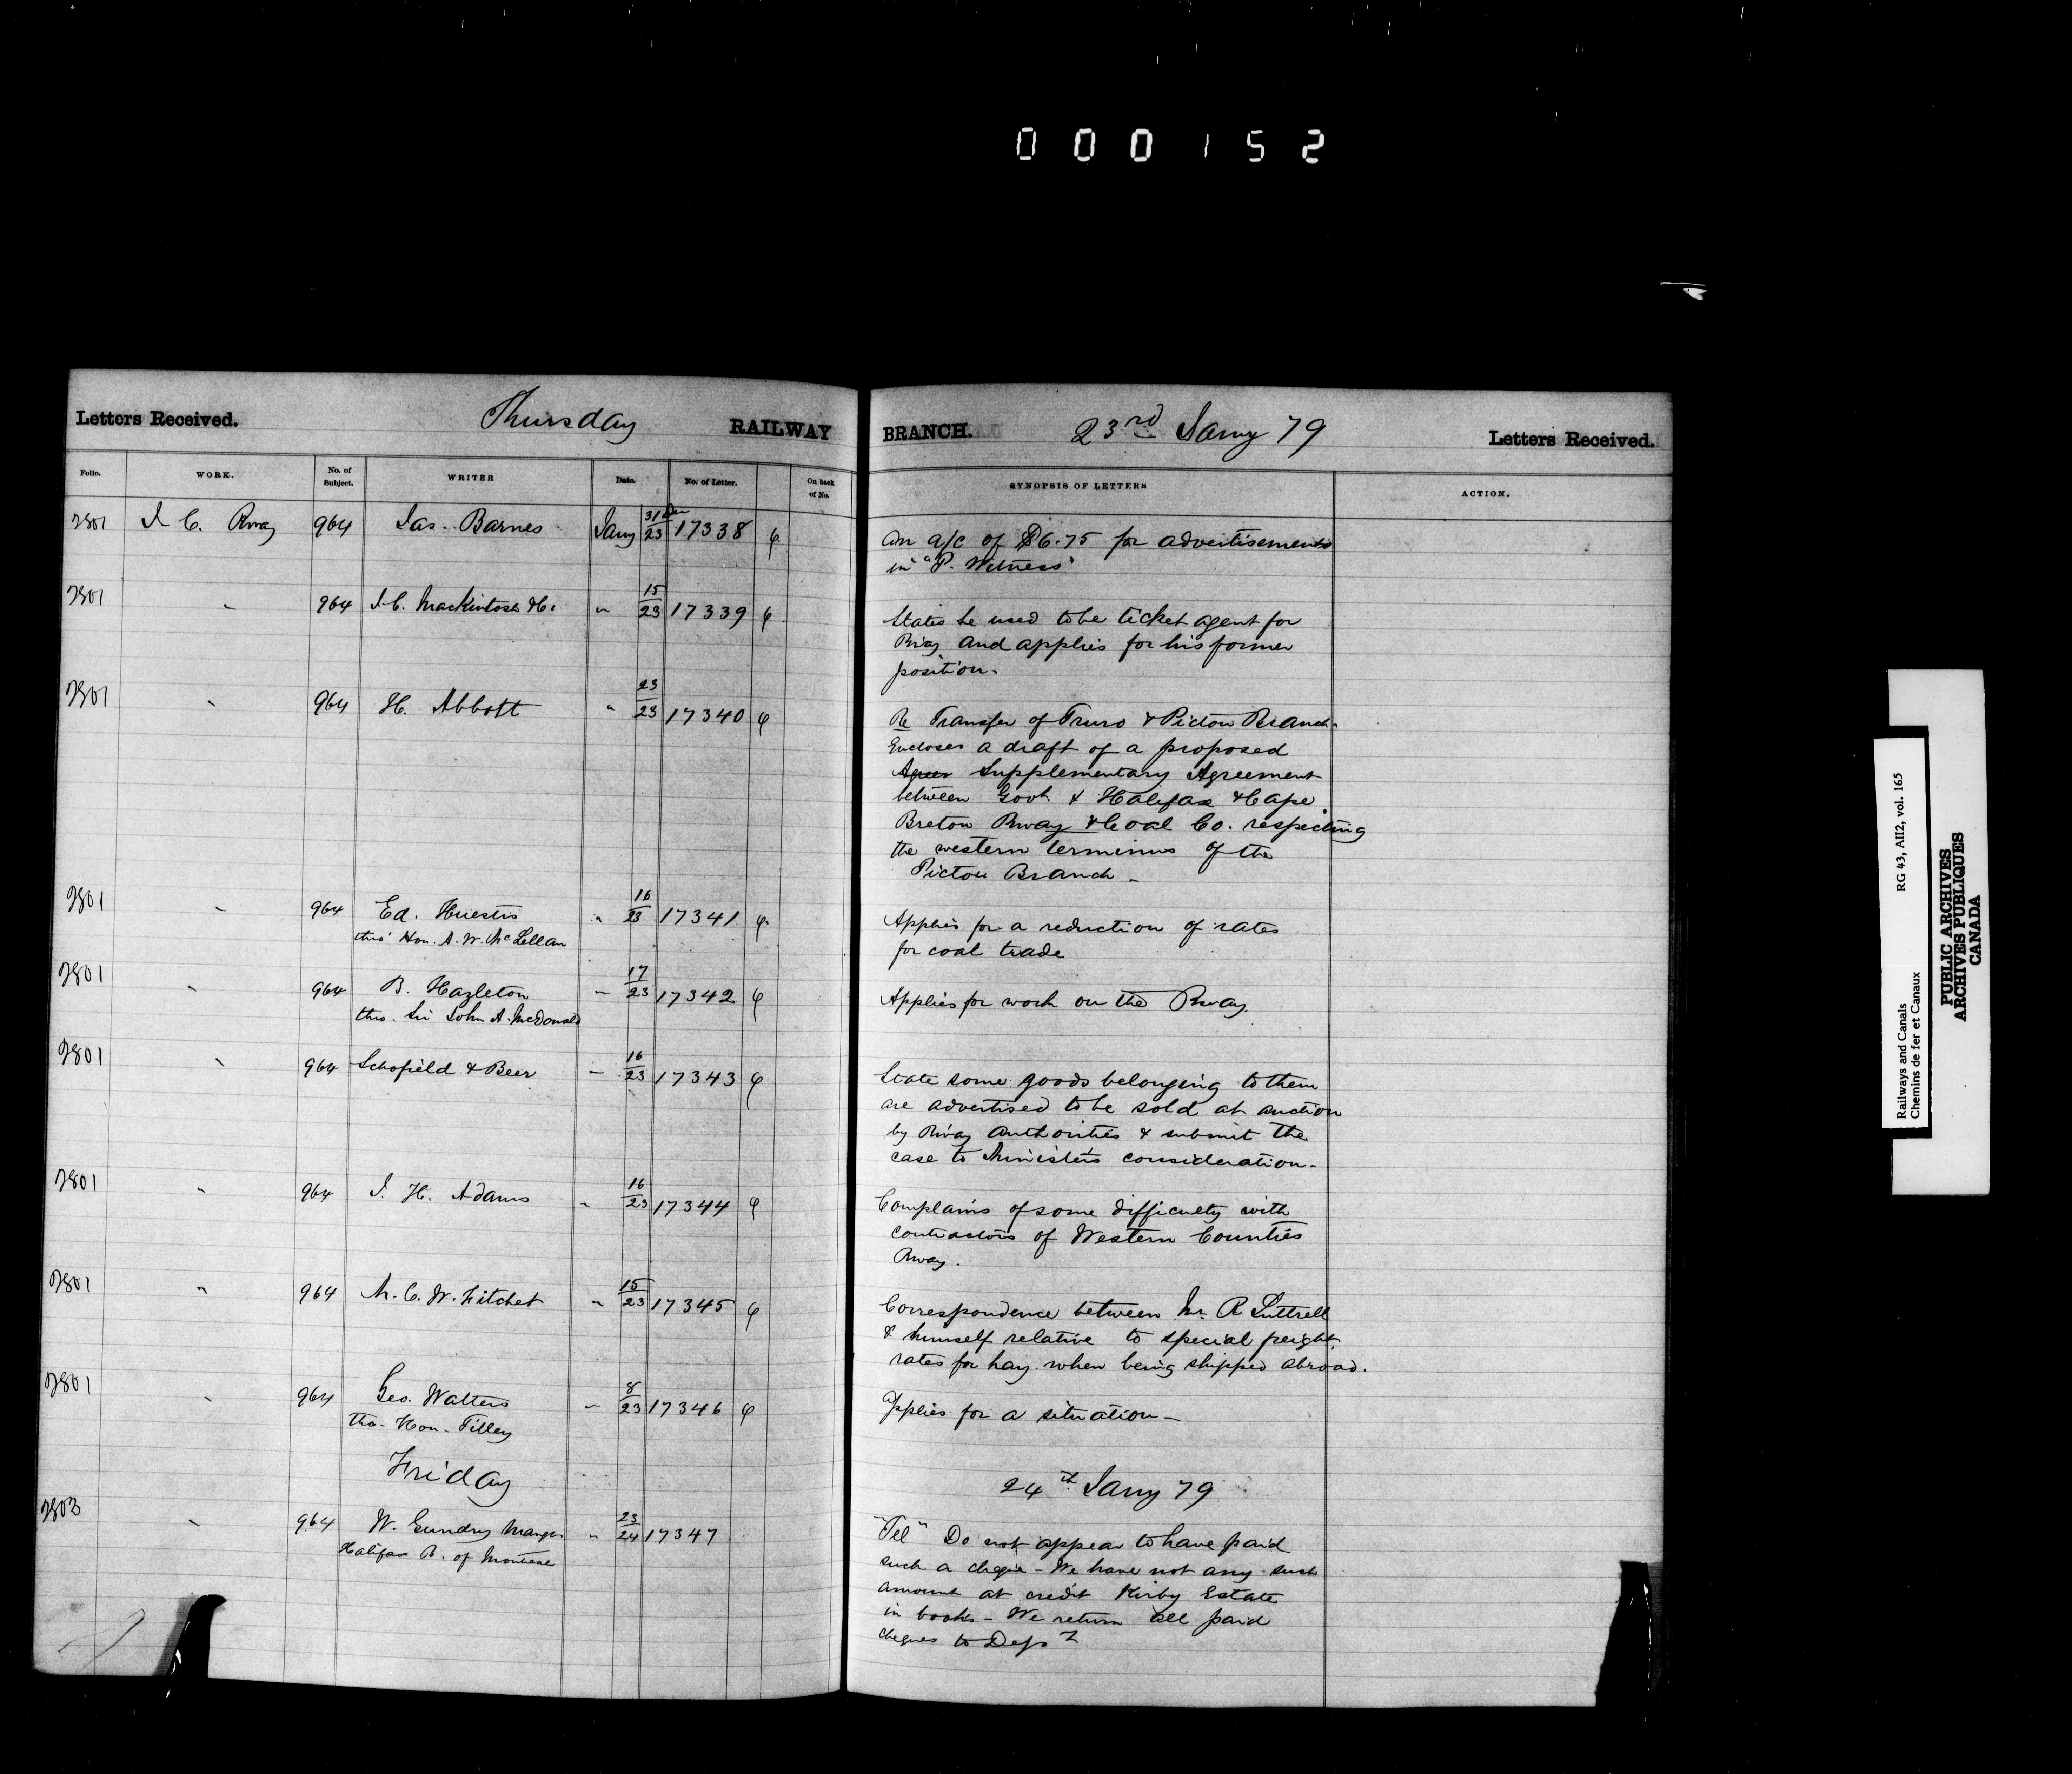 000152
Letters Received. Thursday RAILWAY BRANCH. 23rd Jany 79 Letters Received.
Folio. WORK. No. of Subject. WRITER Date. No. of Letter. On back of No. SYNOPSIS OF LETTERS ACTION.
7801 I. C. Rway 964 Jas. Barnes Jany 31 Dec/23 17338 An a/c of $6.75 for advertisements
in "P. Witness"
7801 " 964 J.C. Mackintosh &c. " 15/23 17339 States he used to be ticket agent for
Rway and applies for his former
position.
7801 " 964 H. Abbott " 23/23 17340 Re Transfer of Truro & Pictou Branch.
Encloses a draft of a proposed
Agree Supplementary Agreement
between Govt & Halifax & Cape
Breton Rway & Coal Co. respecting
the western terminus of the
Pictou Branch -
7801 " 964 Ed. Huestis " 16/23 17341 Applies for a reduction of rates
thro' Hon. A. W. McLellan for coal trade
7801 " 964 B. Hazleton " 17/23 17342 Applies for work on the Rway.
thro. Sir John A. McDonald
7801 " 964 Schofield & Beer " 16/23 17343 State some goods belonging to them
are advertised to be sold at auction
by Rway Authorities & submit the
case to Ministers consideration.
7801 " 964 J. H. Adams " 16/23 17344 Complains of some difficulty with
contractors of Western Counties
Rway.
7801 " 964 C. W. Fitchet " 15/23 17345 Correspondence between Mr R Luttrell
& himself relative to special freight
rates for hay when being shipped abroad.
7801 " 964 Geo. Walters " 8/23 17346 Applies for a situation -
tho- Hon- Tilley
Friday 24th Jany 79
7803 " 964 W. Gundry Mangr " 23/24 17347 "Tel" Do not appear to have paid
Halifax B. of Montreal such a cheque - We have not any such
amount at credit Kirby Estate
in books - We return all paid
cheques to Dept
Railways and Canals RG 43, AII2, vol. 165
Chemins de fer et Canaux
PUBLIC ARCHIVES
ARCHIVES PUBLIQUES
CANADA